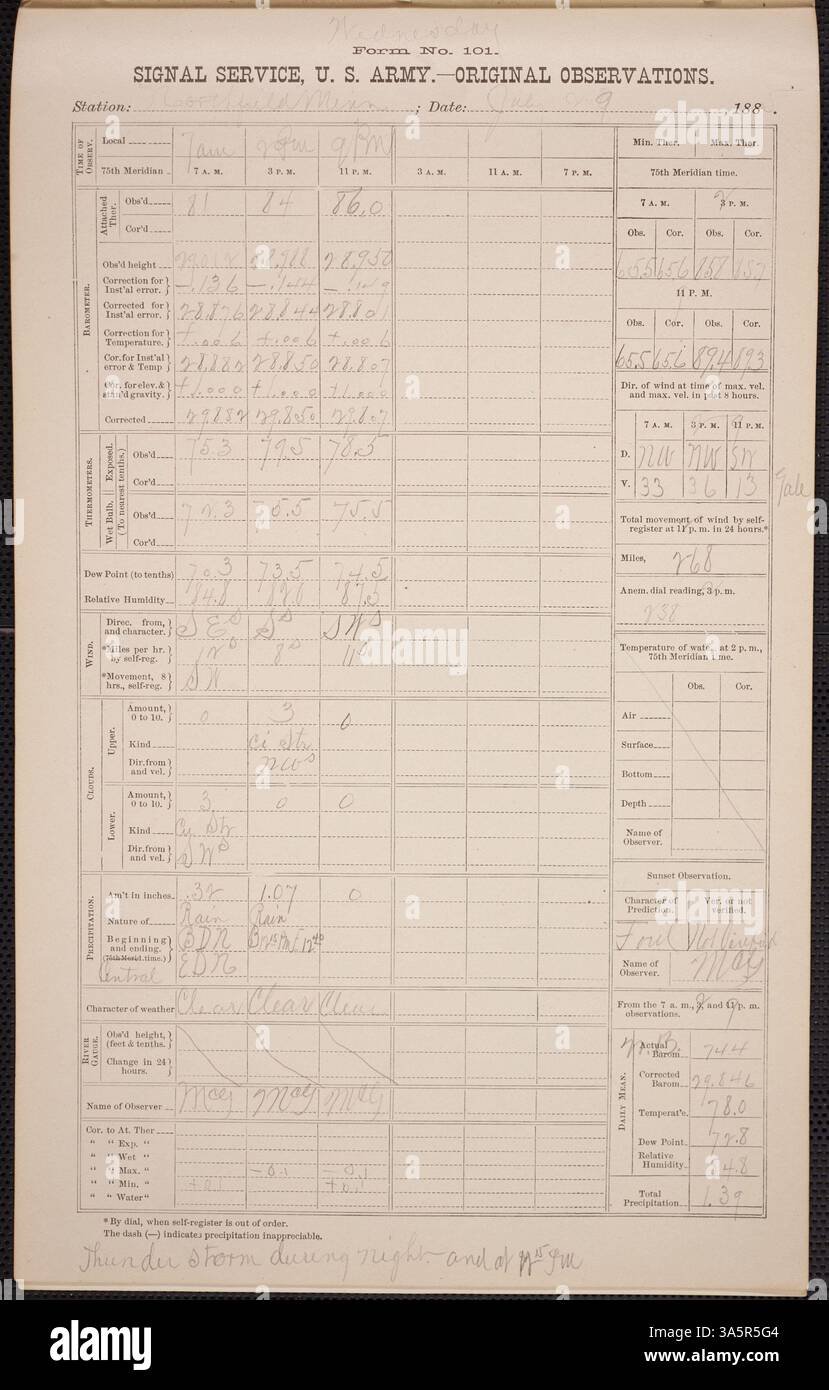 Wednesday
Form No. 101.
SIGNAL SERVICE, U. S. ARMY.—ORIGINAL OBSERVATIONS.
Station: Northfield Minn ; Date: 9 , 188 .
TIME OF OBSERV.
Local 7am 2 Pm 9 PM
75th Meridian 7 A. M. 3 P. M. 11 P. M. 3 A. M. 11 A. M. 7 P. M.
BAROMETER.
Attached Ther.
Obs'd 81 84 86.0
Cor'd
Obs'd height 28.988 28.950
Correction for Inst'al error. -.136 -.144 -.149
Corrected for Inst'al error. 28.876 28.844 28.801
Correction for Temperature. +.006 +.006 +.006
Cor. for Inst'al error & Temp 28.882 28.850 28.807
Cor. for elev. & stan'd gravity. +1.000 +1.000 +1.000
Corrected 29.882 29.850 29.807
THERMOMETERS.
Wet Bulb. Exposed.
(To nearest tenths.)
Obs'd 75.3 79.5 78.5
Cor'd
Obs'd 72.3 75.5 75.5
Cor'd
Dew Point (to tenths) 70.3 73.5 74.5
Relative Humidity 84.8 82.0 87.5
WIND.
Direc. from, and character. SE S SW
*Miles per hr. by self-reg. 12 8 11
*Movement, 8 hrs., self-reg. SW
CLOUDS.
Upper.
Amount, 0 to 10. 0 3 0
Kind Ci Str
Dir. from and vel. NW
Lower.
Amount, 0 to 10. 3 0 0
Kind Cu Str
Dir. from and vel. SW
PRECIPITATION.
Am't in inches .32 1.07 0
Nature of Rain Rain
Beginning and ending. BDN
(75th Merid. time.) Central EDN
Character of weather Clear Clear Clear
RIVER GAUGE.
Obs'd height, (feet & tenths.
Change in 24 hours.
Name of Observer McG McG McG
Cor. to At. Ther
" " Exp. "
" " Wet "
" " Max. " -0.1 -0.1
" " Min. " +0.1 +0.1
" " Water "
Min. Ther. Max. Ther.
75th Meridian time.
7 A. M. 3 P. M.
Obs. Cor. Obs. Cor.
65.5 65.6 85.8 85.7
11 P. M.
Obs. Cor. Obs. Cor.
65.5 65.6 89.4 89.3
Dir. of wind at time of max. vel. and max. vel. in past 8 hours.
7 A. M. 3 P. M. 11 P. M.
D. NW NW SW
V. 33 36 13 Gale
Total movement of wind by self-register at 11 p. m. in 24 hours.*
Miles, 268
Anem. dial reading, 3 p. m.
238
Temperature of water at 2 p. m., 75th Meridian time.
Obs. Cor.
Air
Surface
Bottom
Depth
Name of Observer.
Sunset Observation.
Character of Prediction. Ver. or not verified.
Foul Not Verified
Name of Observer. McG
From the 7 a. m., 3, and 11 p. m. observations. 9
DAILY MEAN.
Actual Barom. 744
Corrected Barom. 29.846
Temperat'e. 78.0
Dew Point 72.8
Relative Humidity 84.8
Total Precipitation. 1.39
* By dial, when self-register is out of order.
The dash (—) indicates precipitation inappreciable.
Thunder storm during night and at Pm
alamy
Image ID: 3A5R5G4
www.alamy.com